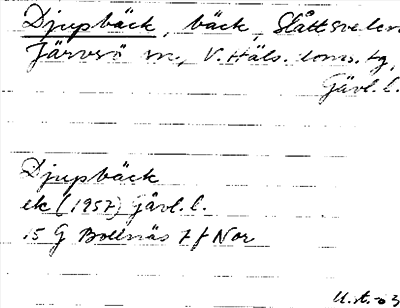 Djupbäck, bäck, Slåttsvelen
Järvsö sn, V. Häls. doms. tg,
Gävl. l.
Djupbäck
ek (1957) Gävl. l.
15 G Bollnäs 7 f Nor
U.A. 63